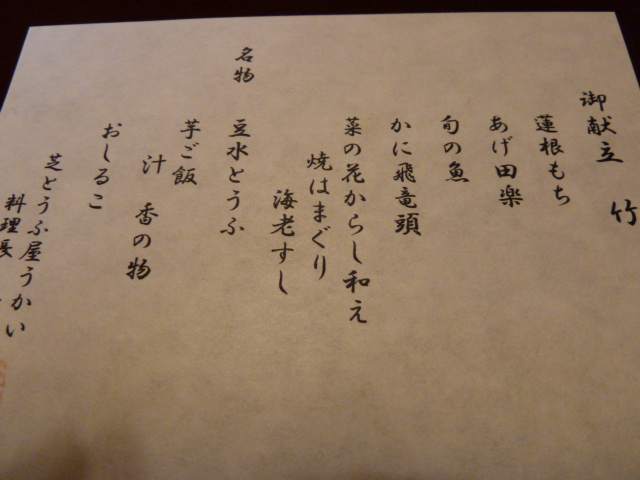 御献立 竹
蓮根もち
あげ田楽
旬の魚
かに飛竜頭
菜の花からし和え
焼はまぐり
海老すし
名物 豆水とうふ
芋ご飯
汁 香の物
おしるこ
芝とうふ屋うかい
料理長